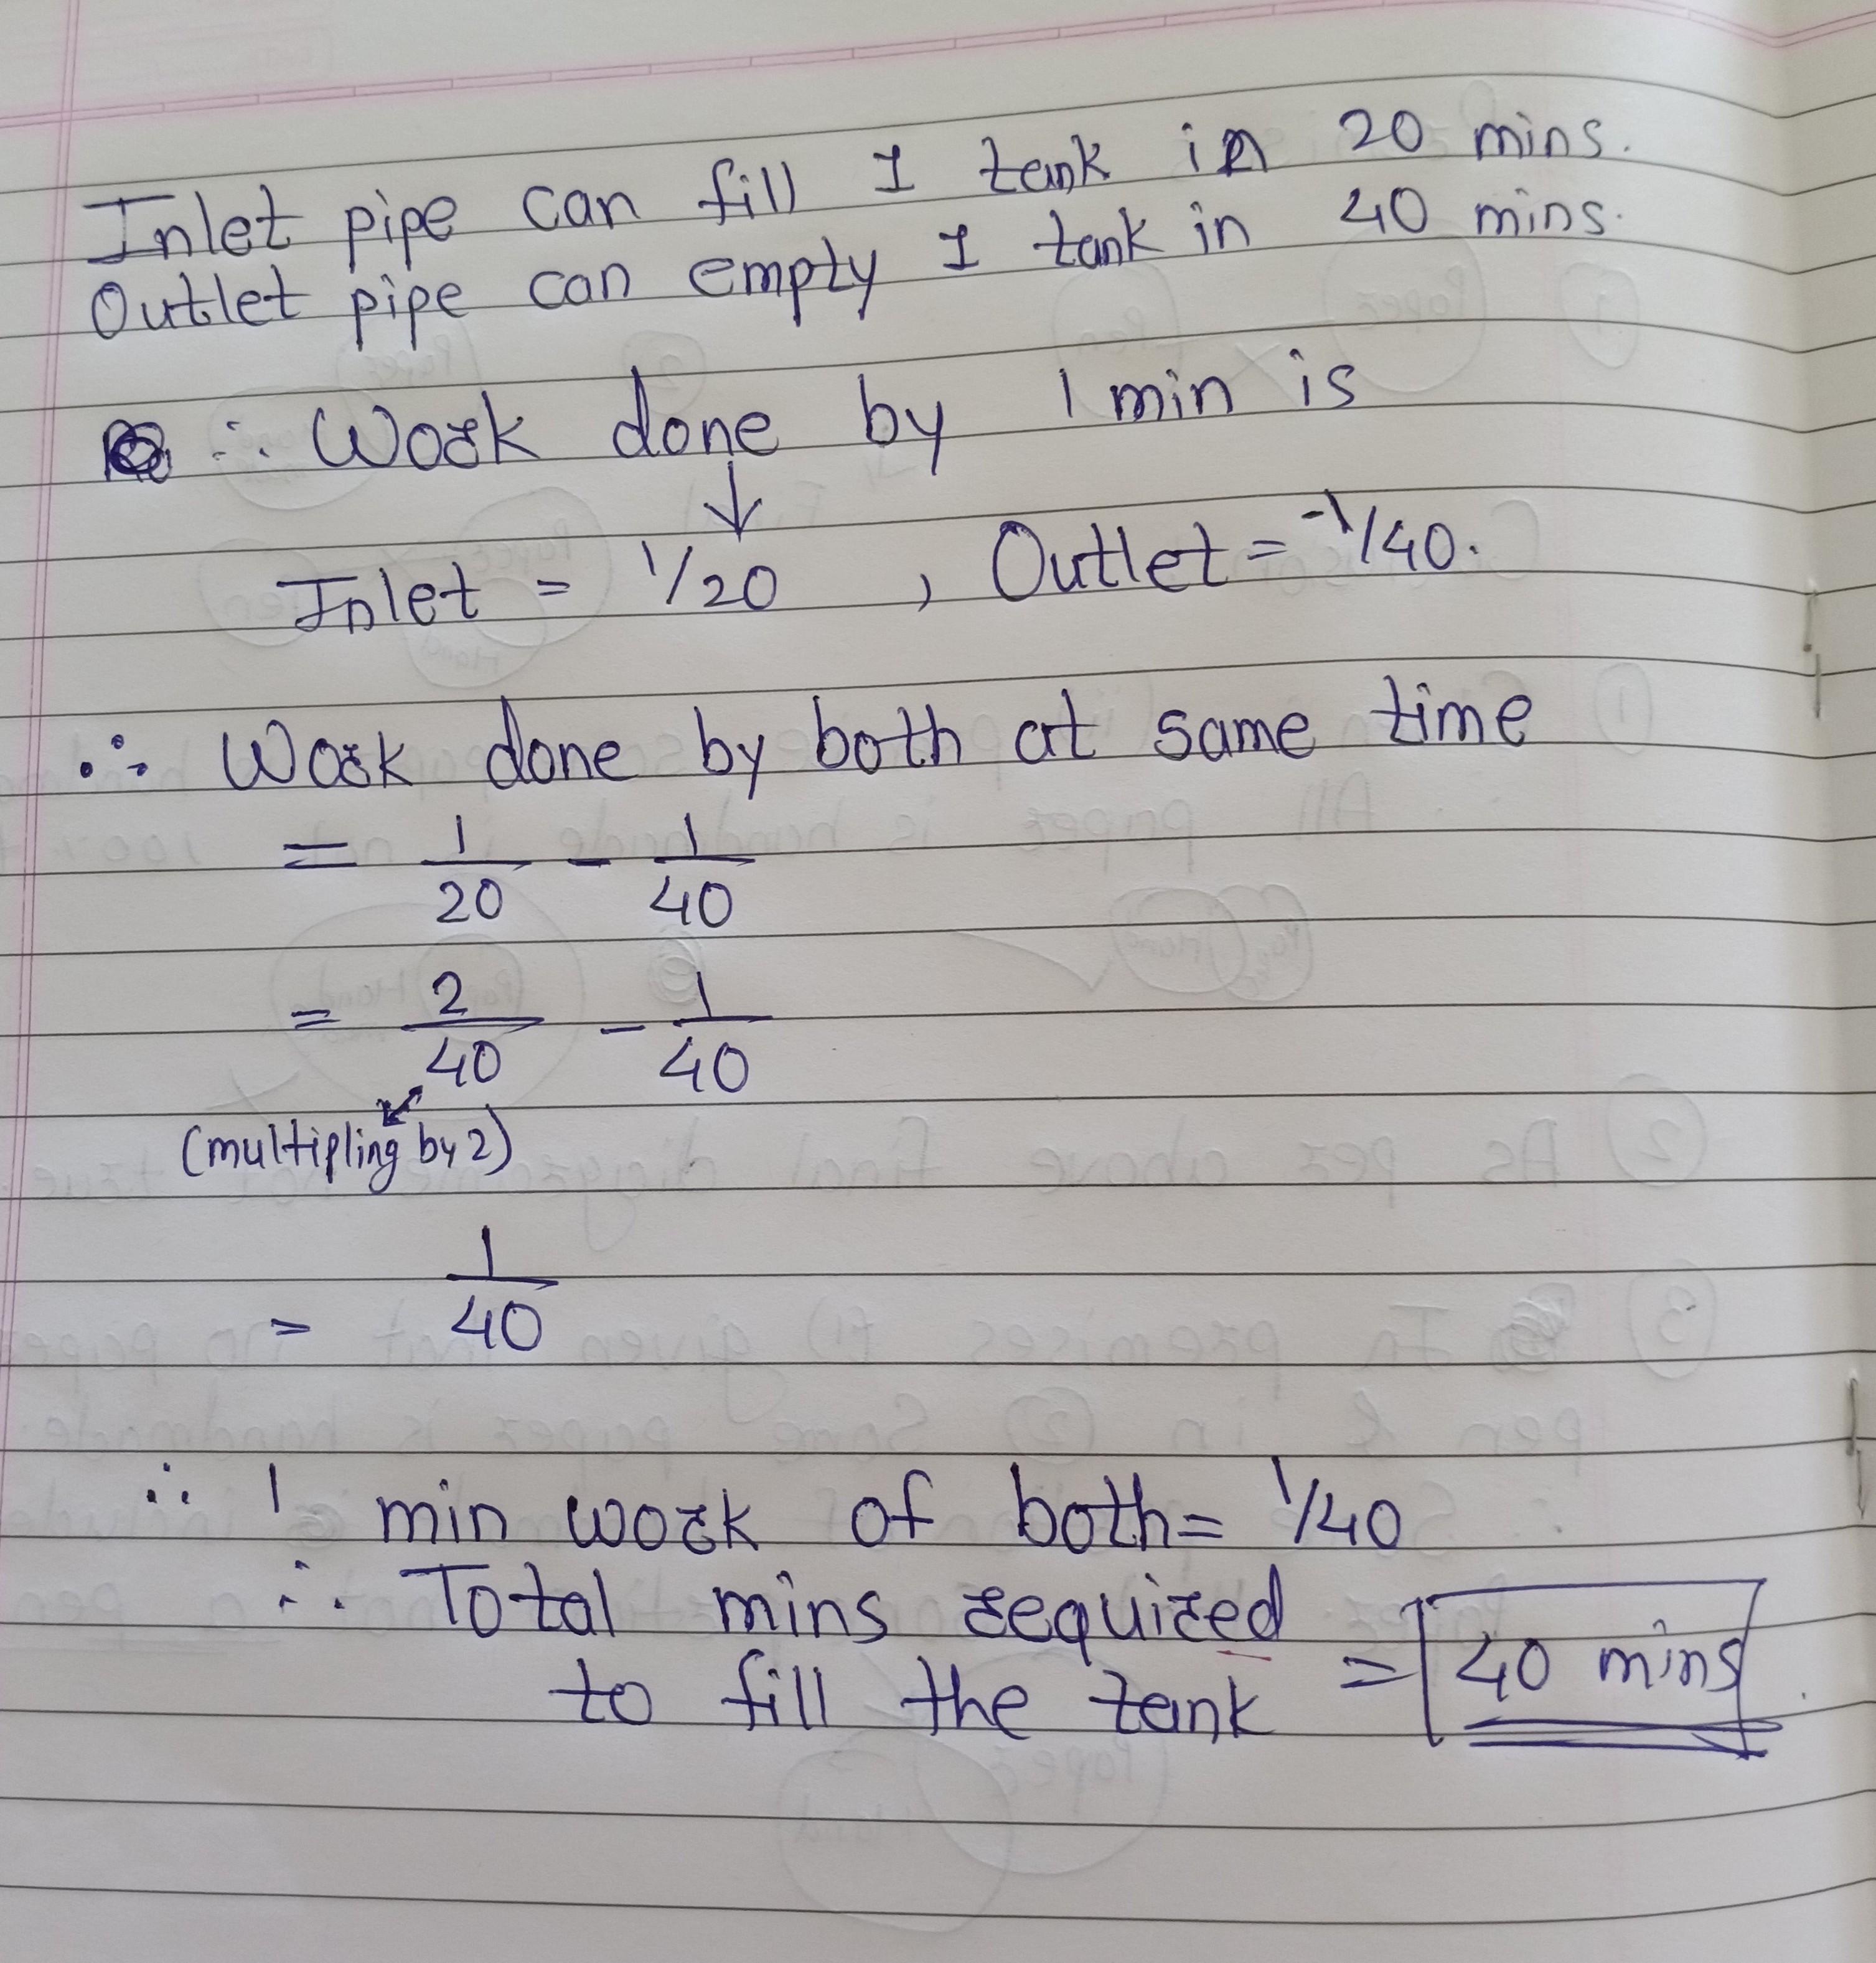 Inlet pipe can fill 1 tank in 20 mins.
Outlet pipe can empty 1 tank in 40 mins.
∴ Work done by 1 min is
↓
Inlet = 1/20 , Outlet = -1/40.
∴ Work done by both at same time
= 1/20 - 1/40
= 2/40 - 1/40
(multipling by 2)
= 1/40
∴ 1 min work of both = 1/40
∴ Total mins required
to fill the tank = 40 mins